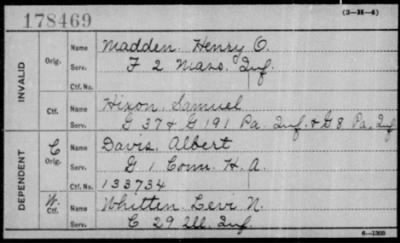 178469
(3-H-4)
INVALID
Orig.
Name Madden Henry O.
Serv. F 2 Mass. Inf.
Ctf. No.
Ctf.
Name Hixon Samuel
Serv. G 37 & G 191 Pa. Inf. & G 8 Pa. Inf
DEPENDENT
C
Orig.
Name Davis, Albert
Serv. G 1 Conn. H. A.
Ctf. No. 133734
W.
Ctf.
Name Whitten Levi N.
Serv. C 29 Ill. Inf.